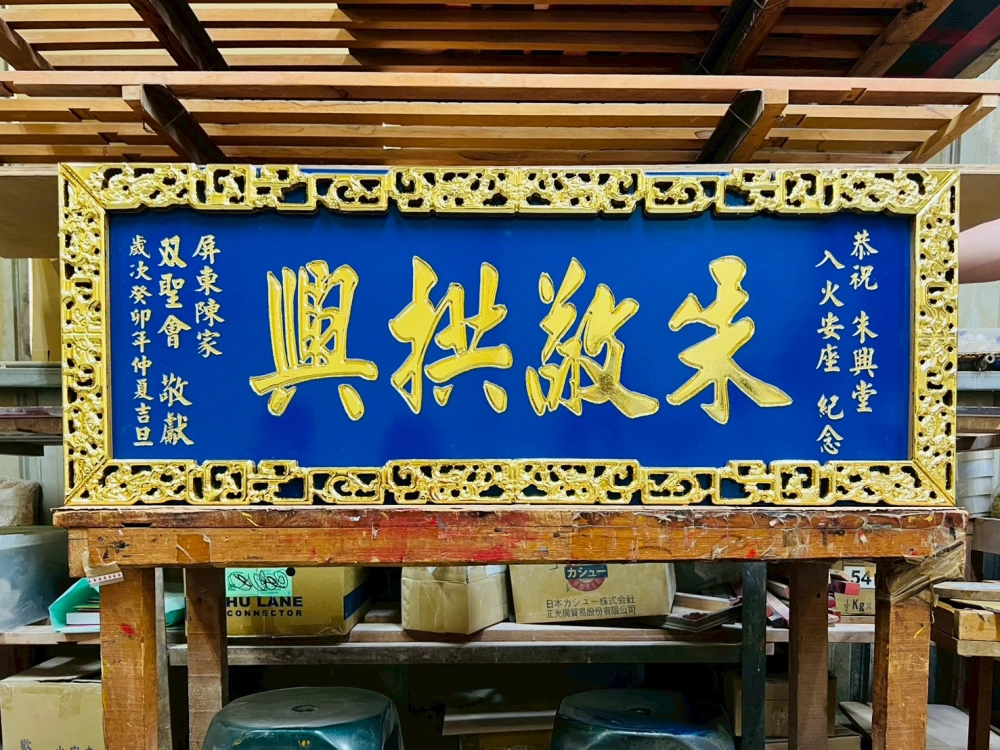 恭祝 朱興堂
入火安座 紀念
朱敬拱興
屏東陳家
双聖會 敬獻
歲次癸卯年仲夏吉旦
HU LANE
CONNECTOR
カシュー
日本カシュー株式会社
正光陽貿易股份有限公司
54
½ Kg